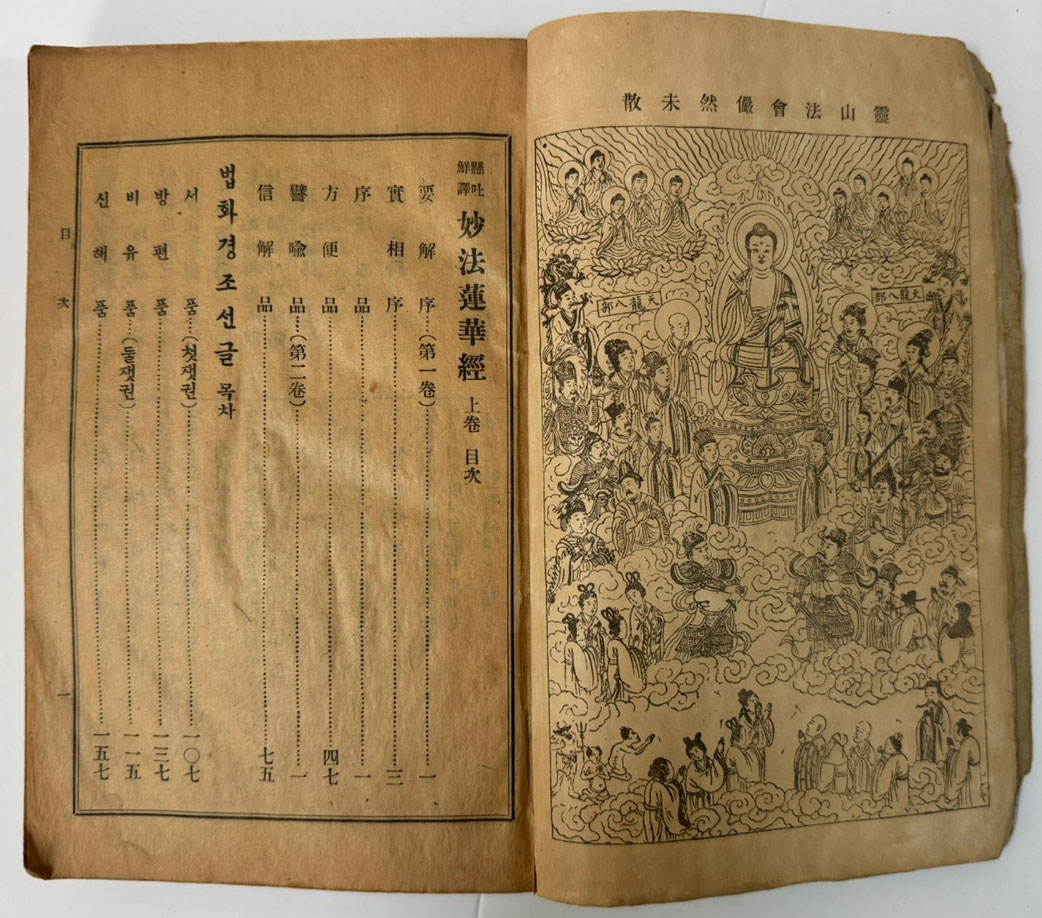 靈山法會儼然未散
天龍八部
天龍八部
懸吐鮮譯 妙法蓮華經 上卷 目次
要解序……(第一卷)……一
實相序……三
序品……一
方便品……四七
譬喩品……(第二卷)……一
信解品……七五
법화경조선글 목차
서품……(첫잿권)……一〇七
방편품……一三七
비유품……(둘잿권)……一一五
신해품……一五七
目次 一